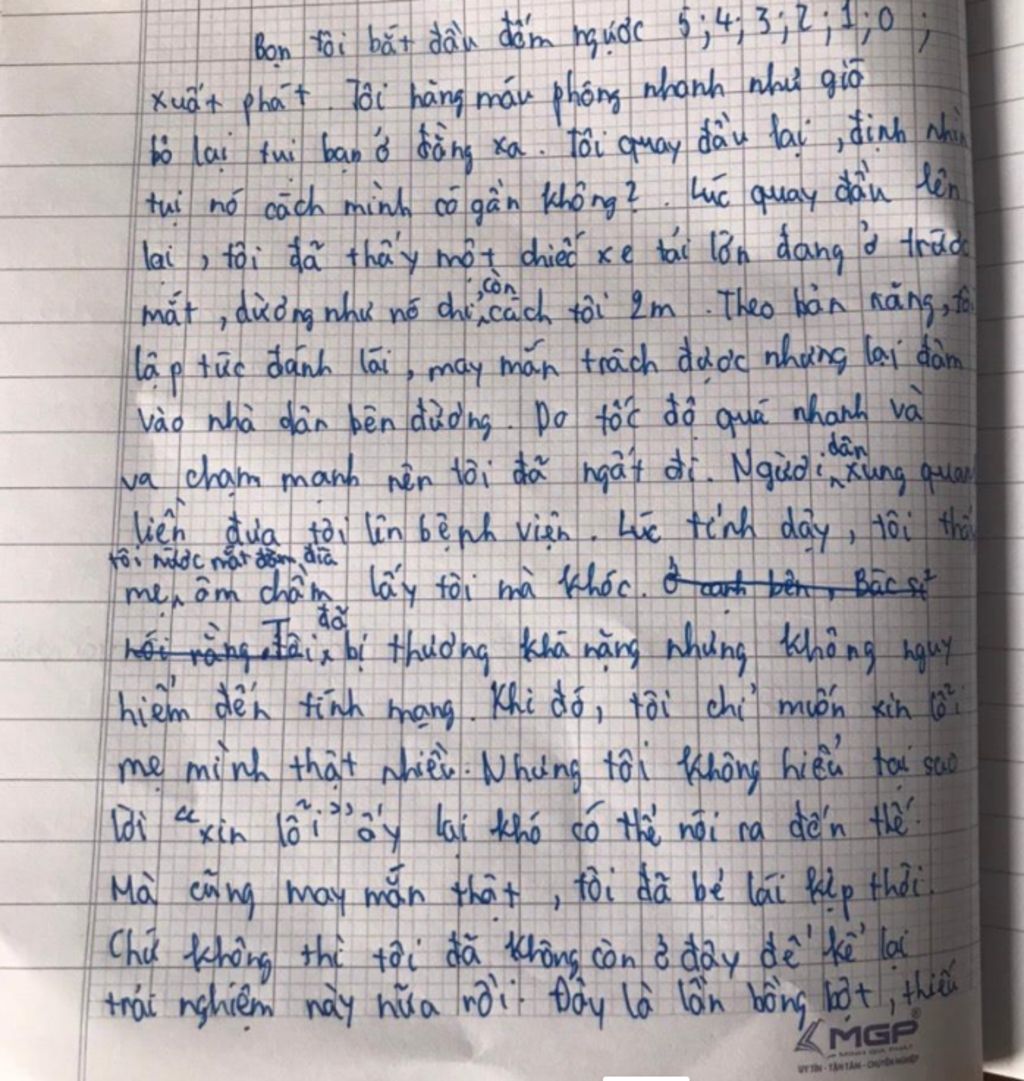 Bọn tôi bắt đầu đếm ngược 5; 4; 3; 2; 1; 0;
xuất phát. Tôi hăng máu phóng nhanh như gió
bỏ lại tui bạn ở đằng xa. Tôi quay đầu lại, định nhìn
tụi nó cách mình có gần không? Lúc quay đầu lên
lại, tôi đã thấy một chiếc xe tải lớn đang ở trước
mắt, dường như nó chỉ còn cách tôi 2m. Theo bản năng, tôi
lập tức đánh lái, may mắn trách được nhưng lại đâm
vào nhà dân bên đường. Do tốc độ quá nhanh và
va chạm mạnh nên tôi đã ngất đi. Người dân xung quanh
liền đưa tôi lên bệnh viện. Lúc tỉnh dậy, tôi thấy
mẹ tôi nước mắt đầm đìa ôm chầm lấy tôi mà khóc. ở cạnh bên, Bác sĩ
nói rằng tôi Tôi đã bị thương khá nặng nhưng không nguy
hiểm đến tính mạng. Khi đó, tôi chỉ muốn xin lỗi
mẹ mình thật nhiều. Nhưng tôi không hiểu tại sao
lời "xin lỗi" ấy lại khó có thể nói ra đến thế.
Mà cũng may mắn thật, tôi đã bẻ lái kịp thời.
Chứ không thì tôi đã không còn ở đây để kể lại
trải nghiệm này nữa rồi. Đây là lần bồng bột, thiếu
MGP
UY TÍN - TẬN TÂM - CHUYÊN NGHIỆP